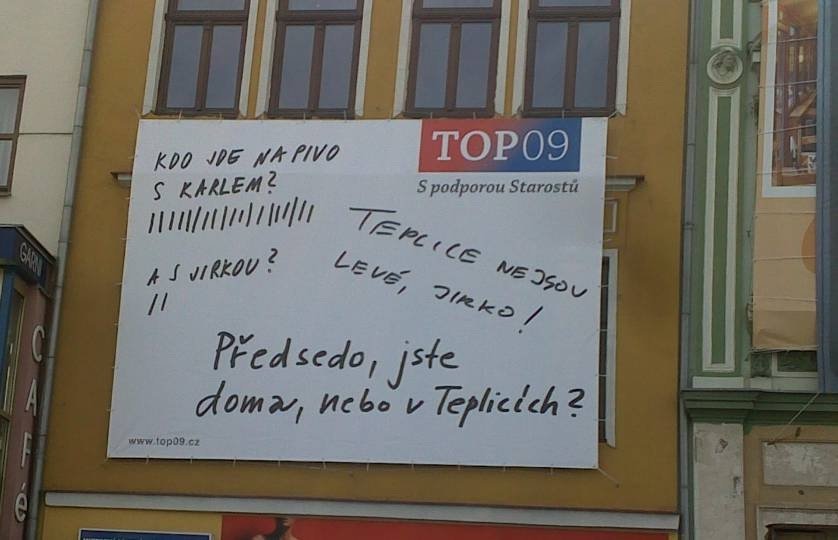 TOP09
S podporou Starostů
KDO JDE NA PIVO
S KARLEM?
A S JIRKOU?
TEPLICE NEJSOU
LEVÉ, JIRKO!
Předsedo, jste
doma, nebo v Teplicích?
www.top09.cz
GARNI
CAFé